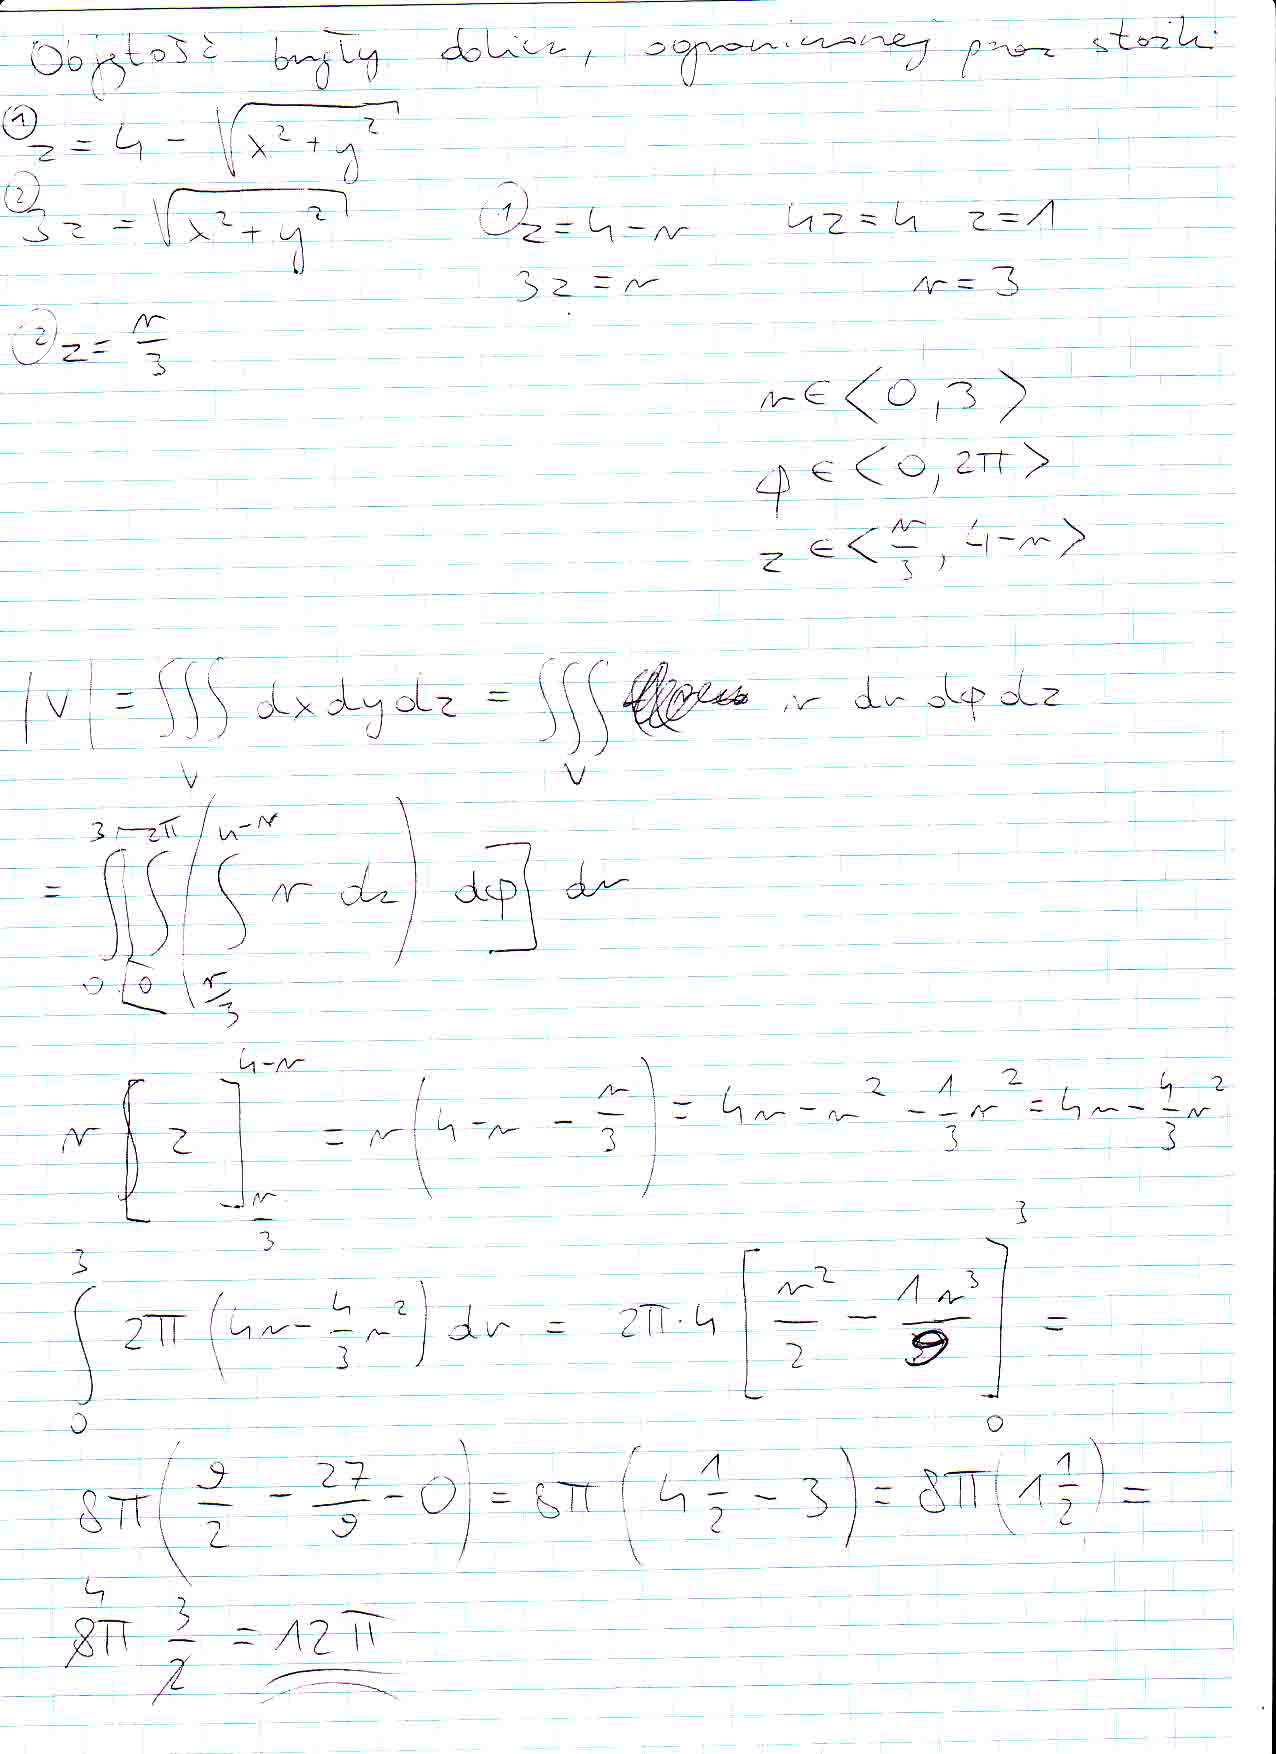 Objętość bryły oblicz, ograniczonej przez stożki
① z = 4 - √(x² + y²)
② 3z = √(x² + y²)
① z = 4 - r 4z = 4 z = 1
3z = r r = 3
② z = r/3
r ∈ <0, 3>
φ ∈ <0, 2π>
z ∈ <r/3, 4-r>
|V| = ∫∫∫_V dx dy dz = ∫∫∫_V r dr dφ dz
= ∫_0^3 [ ∫_0^{2π} ( ∫_{r/3}^{4-r} r dz ) dφ ] dr
r [z]_{r/3}^{4-r} = r (4 - r - r/3) = 4r - r² - 1/3 r² = 4r - 4/3 r²
∫_0^3 2π (4r - 4/3 r²) dr = 2π·4 [r²/2 - 1r³/9]_0^3 =
8π (9/2 - 27/9 - 0) = 8π (4 1/2 - 3) = 8π (1 1/2) =
4
8π 3/2 = 12π